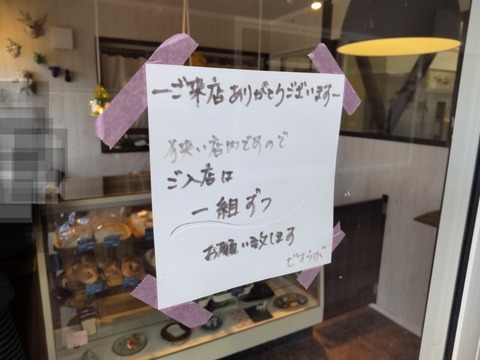 ーご来店ありがとうございますー
狭い店内ですので
ご入店は
一組ずつ
お願い致します